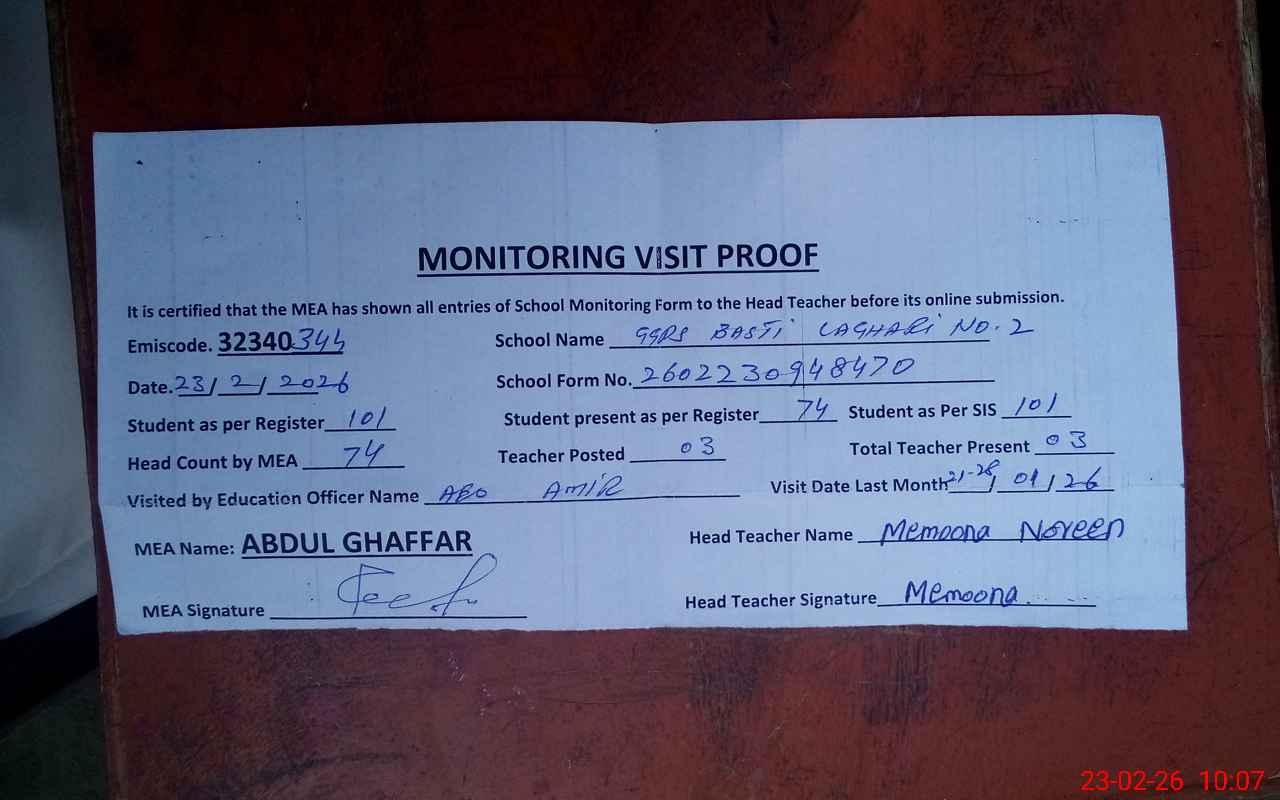 MONITORING VISIT PROOF
It is certified that the MEA has shown all entries of School Monitoring Form to the Head Teacher before its online submission.
Emiscode. 32340344 School Name GGPS BASTI LAGHARI NO. 2
Date. 23/2/2026 School Form No. 2602230948470
Student as per Register 101 Student present as per Register 74 Student as Per SIS 101
Head Count by MEA 74 Teacher Posted 03 Total Teacher Present 03
Visited by Education Officer Name AEO AMIR Visit Date Last Month 21-28/01/26
MEA Name: ABDUL GHAFFAR Head Teacher Name Memoona Noreen
MEA Signature Head Teacher Signature Memoona
23-02-26 10:07